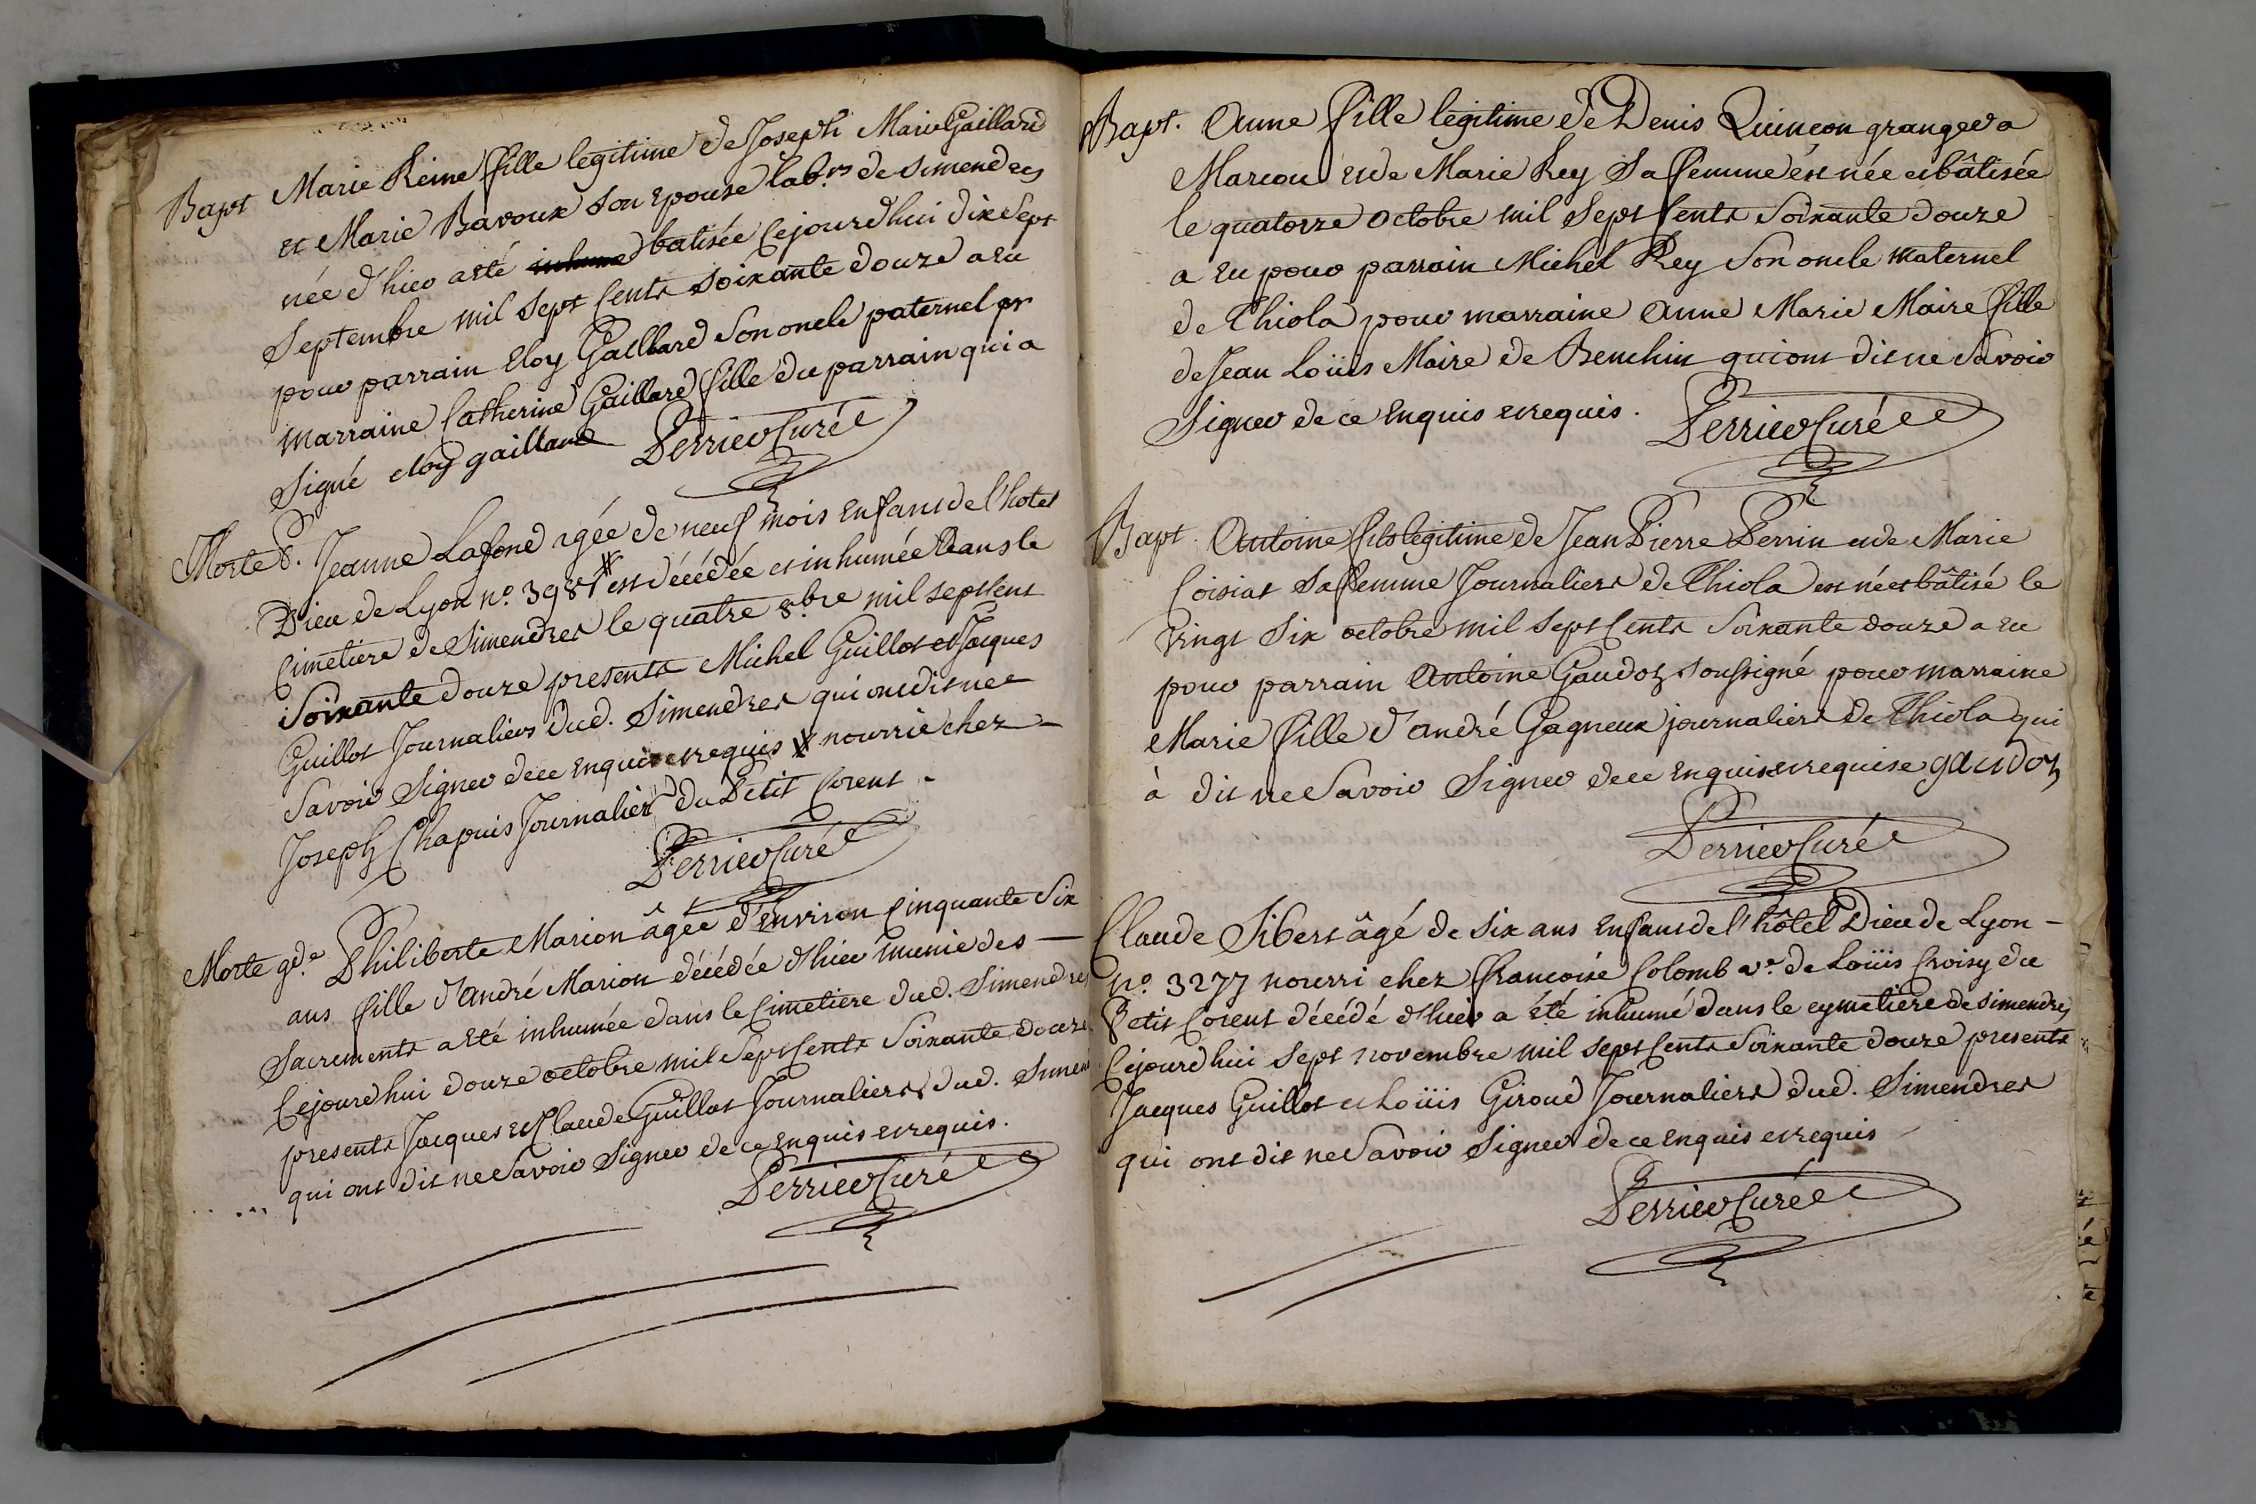 Bapt Marie Reine fille legitime de Joseph Marie Gaillard
et Marie Bavoux son epouse lab.rs de Simendres
née d'hier a eté inhumé batisée Cejourdhui dix Sept
Septembre mil Sept Cents Soixante douze a eu
pour parrain Eloy Gaillard Son oncle paternel pr
marraine Catherine Gaillard fille du parrain qui a
Signé eloy gaillard Perrier Curé
Morte P. Jeanne Lafond agée de neuf mois Enfant de l'hotel
Dieu de Lyon n.o 398 est décédée et inhumée dans le
Cimetiere de Simendres le quatre 8.bre mil sept Cent
Soixante douze presents Michel Guillot et Jacques
Guillot Journaliers dud. Simendres qui ont dit ne
Savoir Signer de ce enquis et requis # nourrie chez
Joseph Chapuis Journalier du Petit Corent.
Perrier Curé
Morte gd.e Philiberte Marion âgée d'Environ Cinquante Six
ans fille d'André Marion décédée d'hier munie des
Sacrements a eté inhumée dans le Cimetiere dud. Simendres
Cejourdhui douze octobre mil Sept Cents Soixante douze
presents Jacques et Claude Guillot Journaliers dud. Simen
qui ont dit ne Savoir Signer de ce enquis et requis.
Perrier Curé
Bapt. Anne fille legitime de Denis Quinçon granger a
Marcou et de Marie Rey Sa femme est née et bâtisée
le quatorze octobre mil Sept Cents Soixante douze
a eu pour parrain Michel Rey Son oncle maternel
de Thiola pour marraine Anne Marie Maire fille
de Jean Loüis Maire de Benchin qui ont dit ne Savoir
Signer de ce enquis et requis. Perrier Curé
Bapt. Antoine fils legitime de Jean Pierre Perrin et de Marie
Coisiat Sa femme Journaliers de Thiola est né et bâtisé le
Vingt Six octobre mil Sept Cents Soixante douze a eu
pour parrain Antoine Gaudoz soussigné pour marraine
Marie fille d'andré Gagneux journaliers de Thiola qui
à dit ne Savoir Signer de ce enquise et requise gaudoz
Perrier Curé
Claude Sibert âgé de Six ans Enfant de l'hôtel Dieu de Lyon
n.o 3277 nourri chez francoise Colomb v.e de Loüis Croisy du
Petit Corent décédé d'hier a été inhumé dans le cymetiere de Simendres
Cejourdhui Sept novembre mil Sept Cents Soixante douze presents
Jacques Guillot et Loüis Giroud Journaliers dud. Simendres
qui ont dit ne Savoir Signer de ce enquis et requis
Perrier Curé